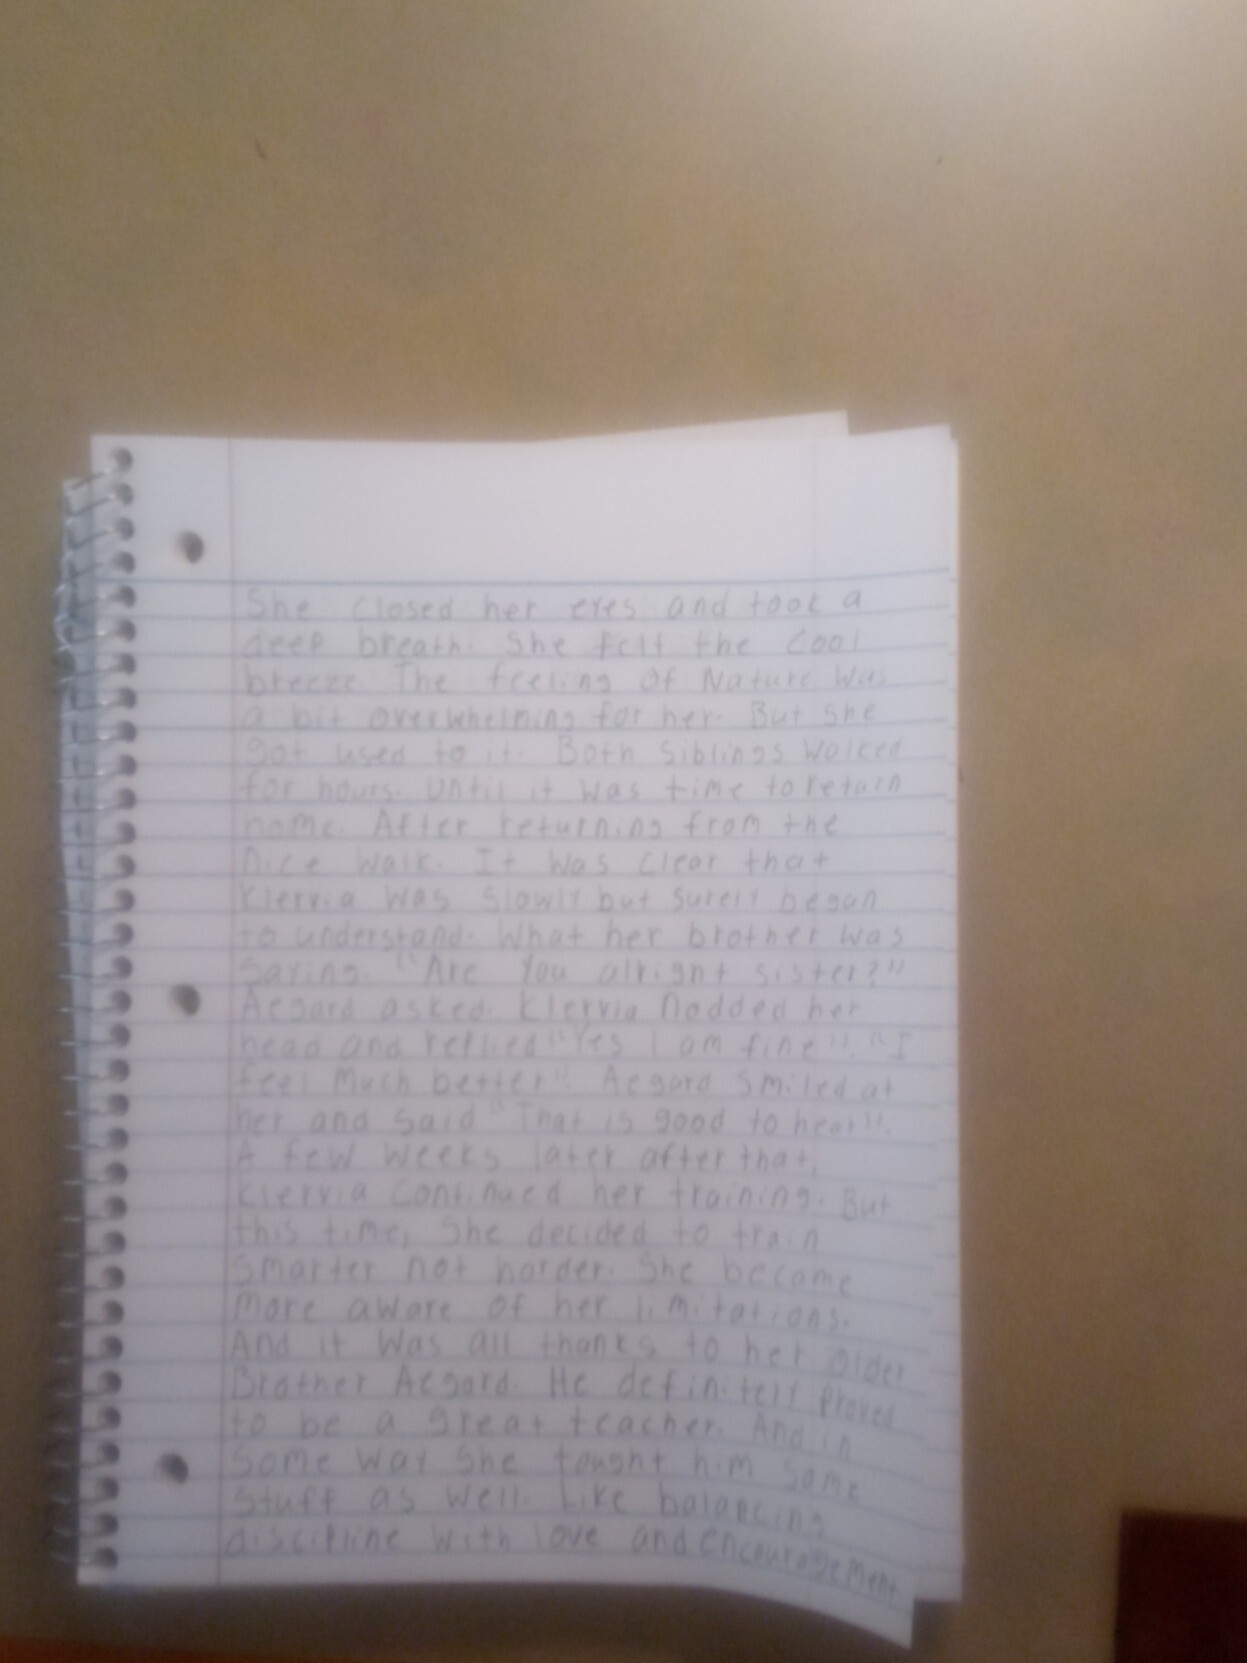 She closed her eyes and took a
deep breath. She felt the cool
breeze. The feeling of Nature was
a bit overwhelming for her. But she
got used to it. Both siblings walked
for hours. Until it was time to return
home. After returning from the
nice walk. It was clear that
Klervia was slowly but surely began
to understand. What her brother was
saying. "Are You alright sister?"
Aegard asked. Klervia Nodded her
head and replied "Yes I am fine". "I
feel Much better". Aegard smiled at
her and said "That is good to hear".
A few weeks later after that,
Klervia continued her training. But
this time, She decided to train
smarter not harder. She became
More aware of her limitations.
And it was all thanks to her older
Brother Aegard. He definitely proved
to be a great teacher. And in
some way she tought him some
stuff as well. Like balancing
discipline with love and encouragement.